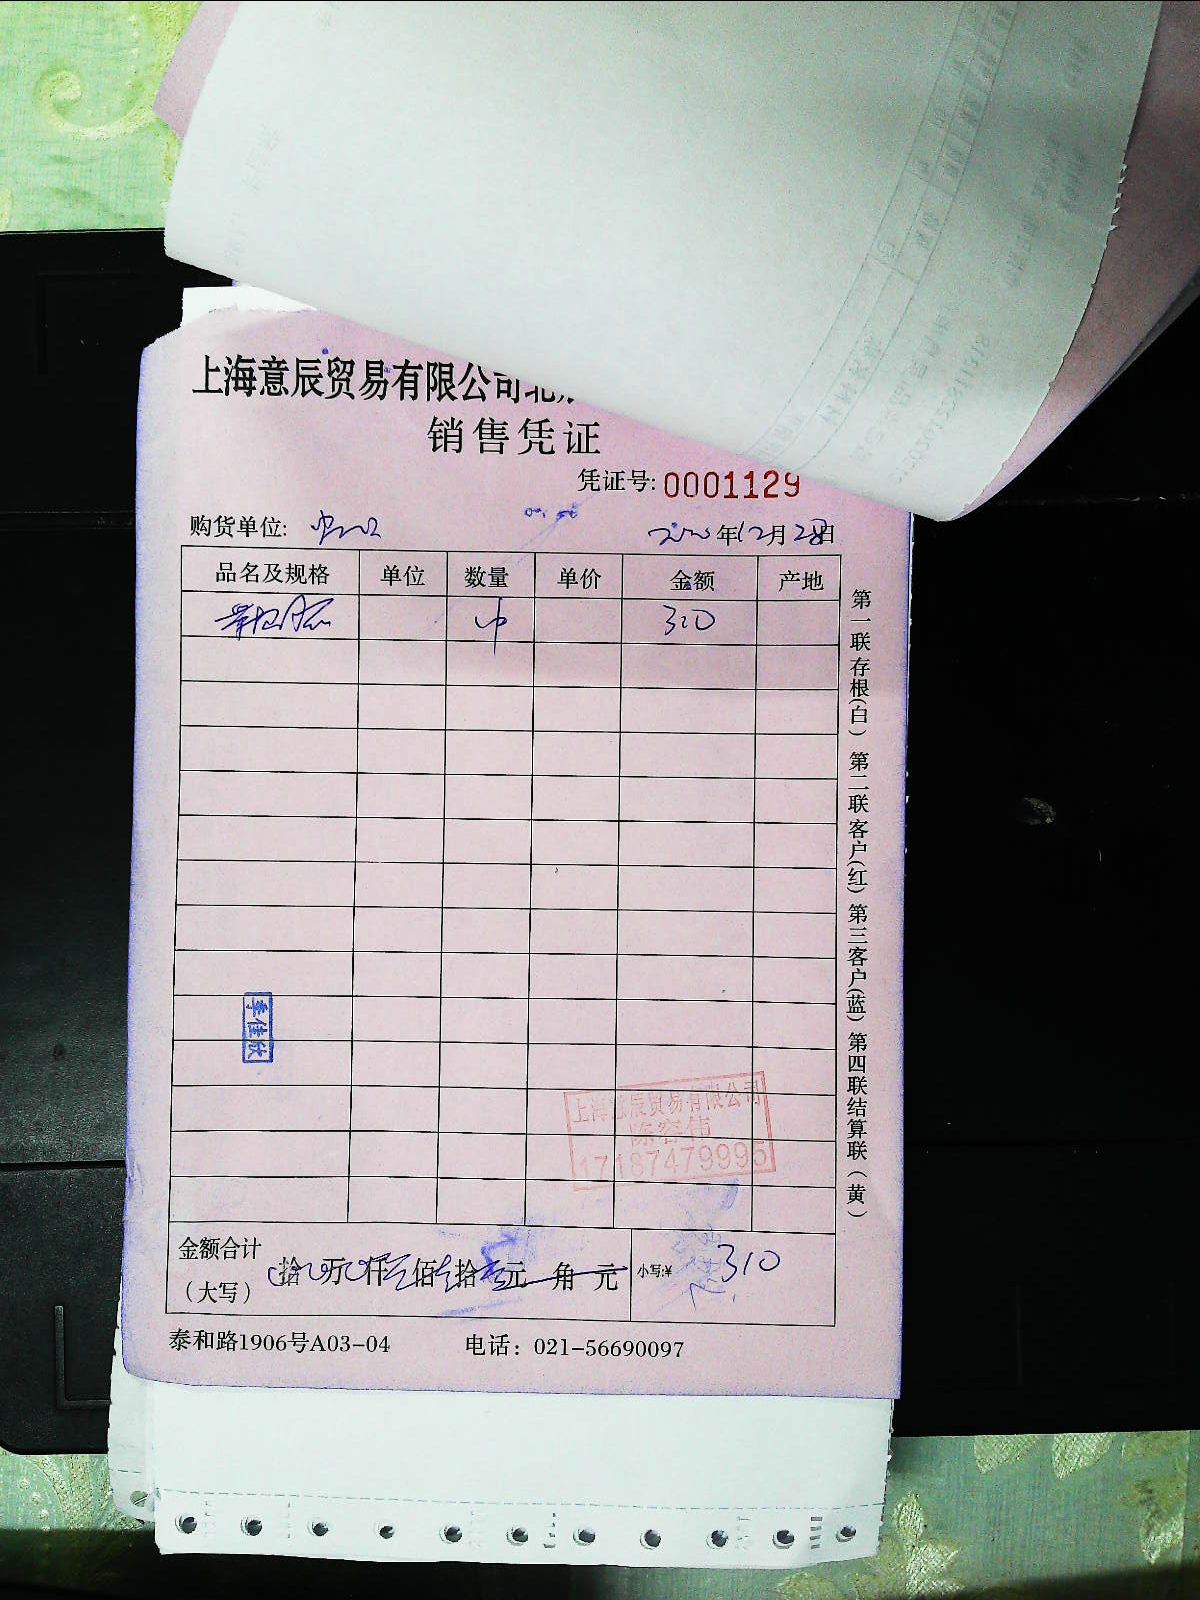 上海意辰贸易有限公司北
销售凭证
凭证号: 0001129
购货单位:
2020年12月28日
品名及规格 单位 数量 单价 金额 产地
310
第一联存根(白) 第二联客户(红) 第三客户(蓝) 第四联结算联(黄)
李佳欣
上海意辰贸易有限公司
陈容伟
17187479995
金额合计
(大写) 拾 万 仟 佰 拾 元 角 元 小写:¥ 310
泰和路1906号A03-04 电话: 021-56690097